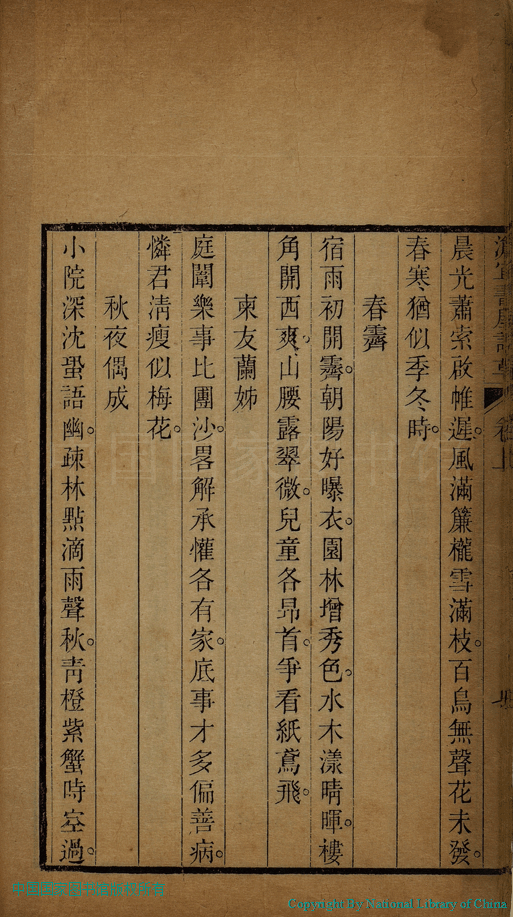 澹宜書屋詩草 卷上
晨光蕭索啟帷遲。風滿簾櫳雪滿枝。百鳥無聲花未發。
春寒猶似季冬時。
春霽
宿雨初開霽。朝陽好曝衣。園林增秀色。水木漾晴暉。樓
角開西爽。山腰露翠微。兒童各昂首。爭看紙鳶飛。
柬友蘭姊
庭闈樂事比團沙。畧解承懽各有家。底事才多偏善病。
憐君清瘦似梅花。
秋夜偶成
小院深沈蛩語幽。疎林點滴雨聲秋。青橙紫蟹時空過。
Copyright By National Library of China